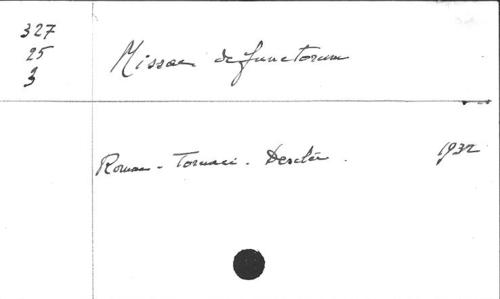 327
25
3
Missae defunctorum
Romae - Tornaci - Desclée . 1932